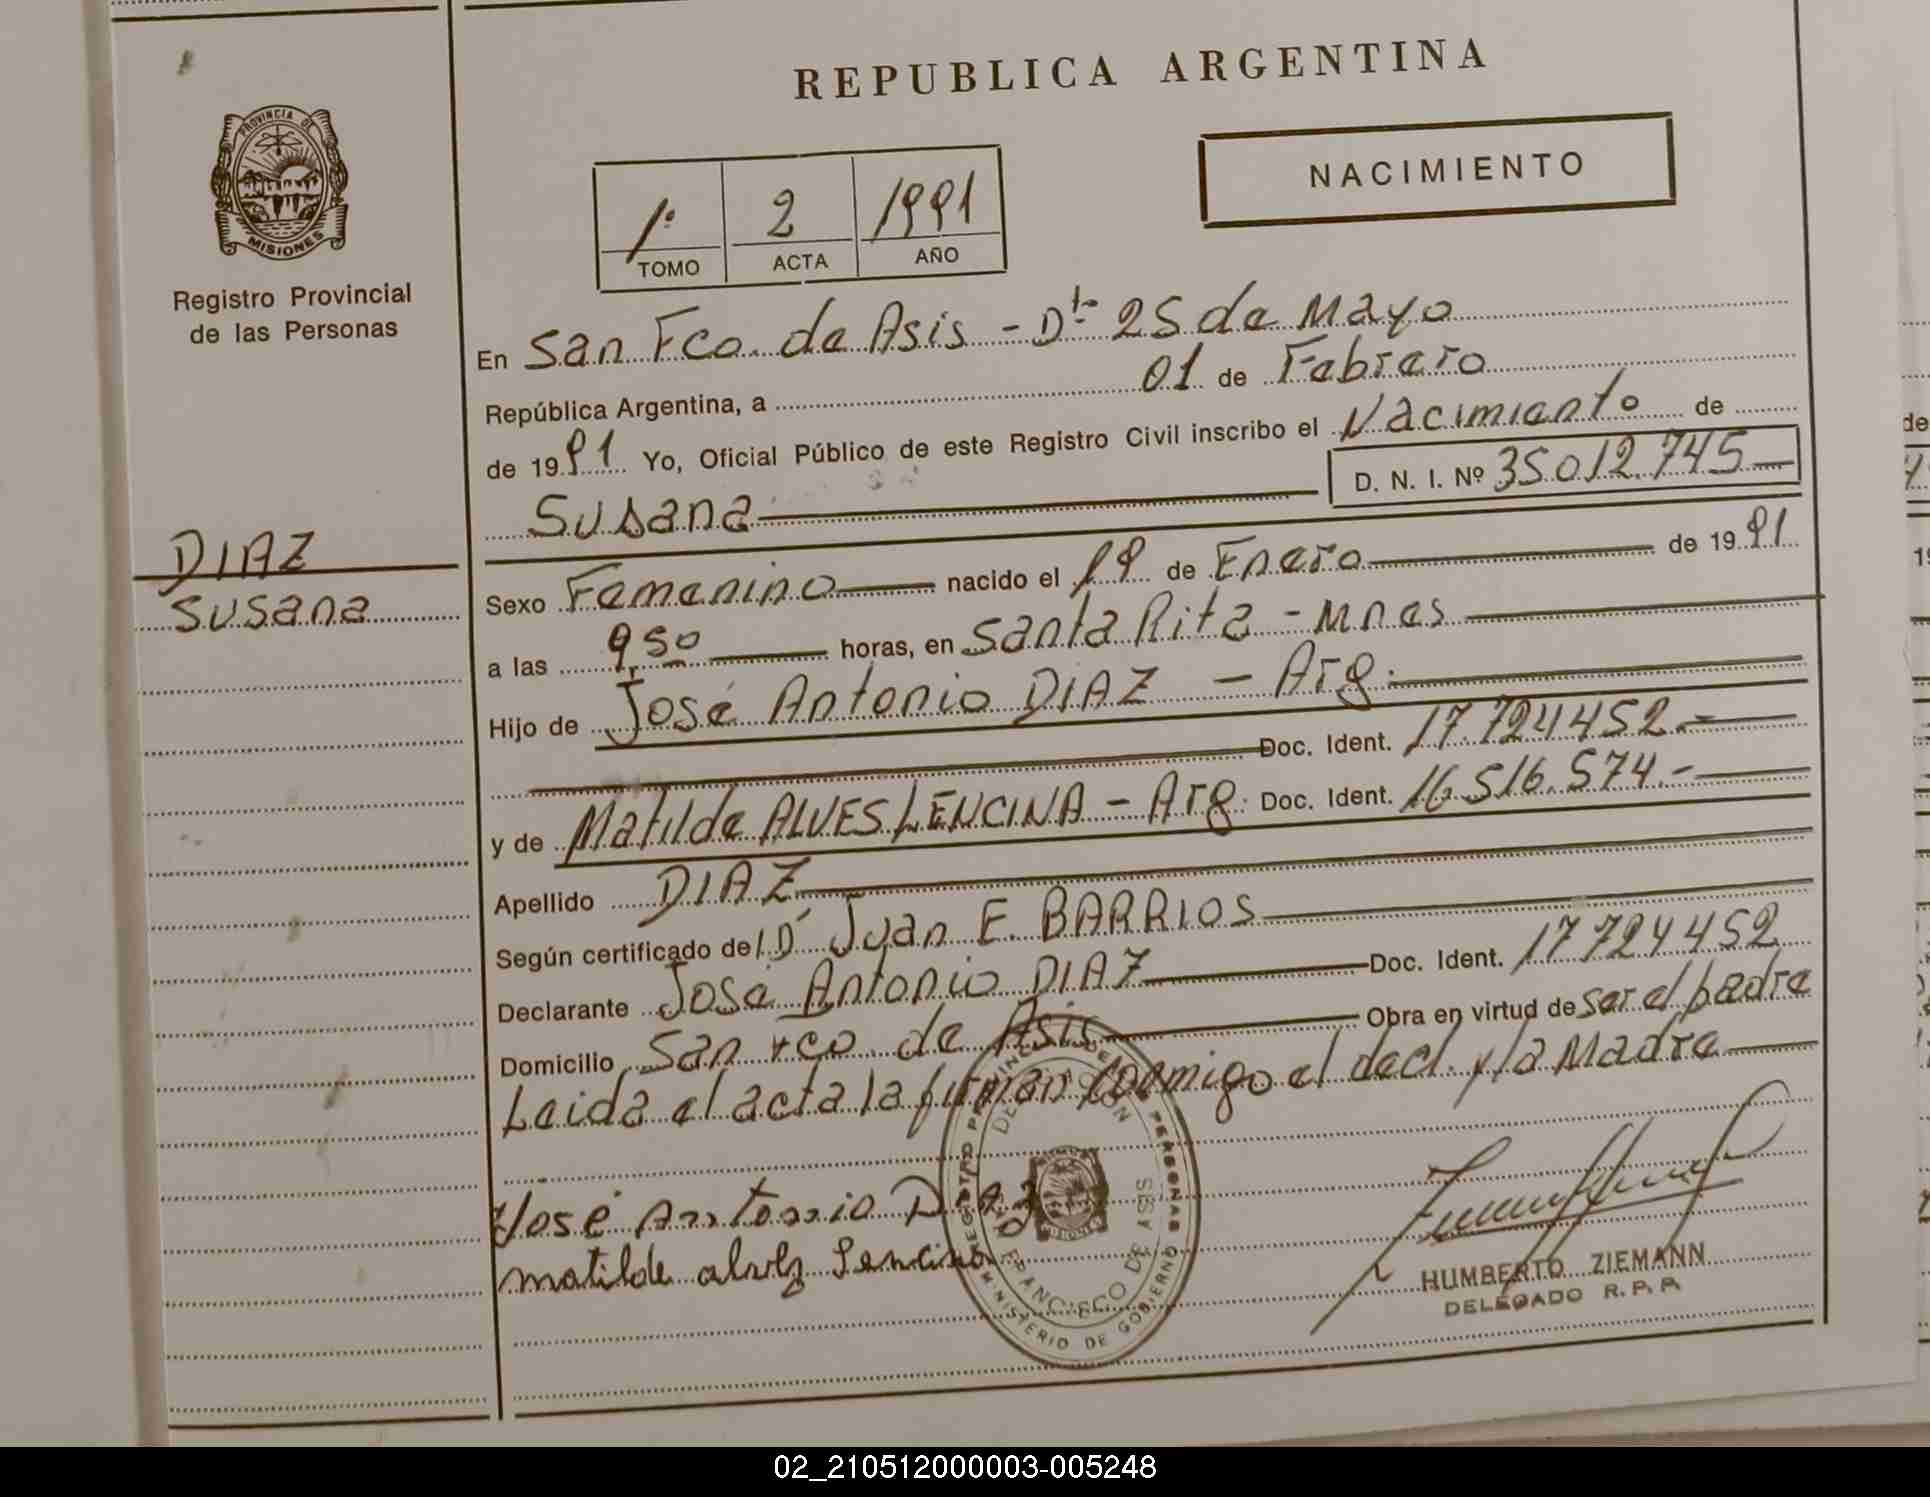 REPUBLICA ARGENTINA
PROVINCIA DE
MISIONES
Registro Provincial
de las Personas
NACIMIENTO
1º 2 1991
TOMO ACTA AÑO
En San Fco. de Asis - Dto 25 de Mayo
República Argentina, a 01 de Febrero
de 1991 Yo, Oficial Público de este Registro Civil inscribo el Nacimiento de
D. N. I. Nº 35012.745
Susana
DIAZ
Susana
Sexo Femenino nacido el 19 de Enero de 1991
a las 9,50 horas, en Santa Rita - Mnes
Hijo de José Antonio DIAZ - Arg.
Doc. Ident. 17.724452.-
y de Matilde ALVES LENCINA - Arg. Doc. Ident. 16.516.574.-
Apellido DIAZ
Según certificado del Dº Juan E. BARRIOS
Declarante José Antonio DIAZ Doc. Ident. 17724452
Domicilio San Fco. de Asis Obra en virtud de ser el padre
Leida el acta la firman conmigo el decl. y la Madre
José Antonio Diaz
matilde alvez Lencina
REGISTRO PROVINCIAL DE LAS PERSONAS
DELEGACION
FRANCISCO DE ASIS
MISIONES
MINISTERIO DE GOBIERNO
HUMBERTO ZIEMANN
DELEGADO R. P. P.
02_210512000003-005248